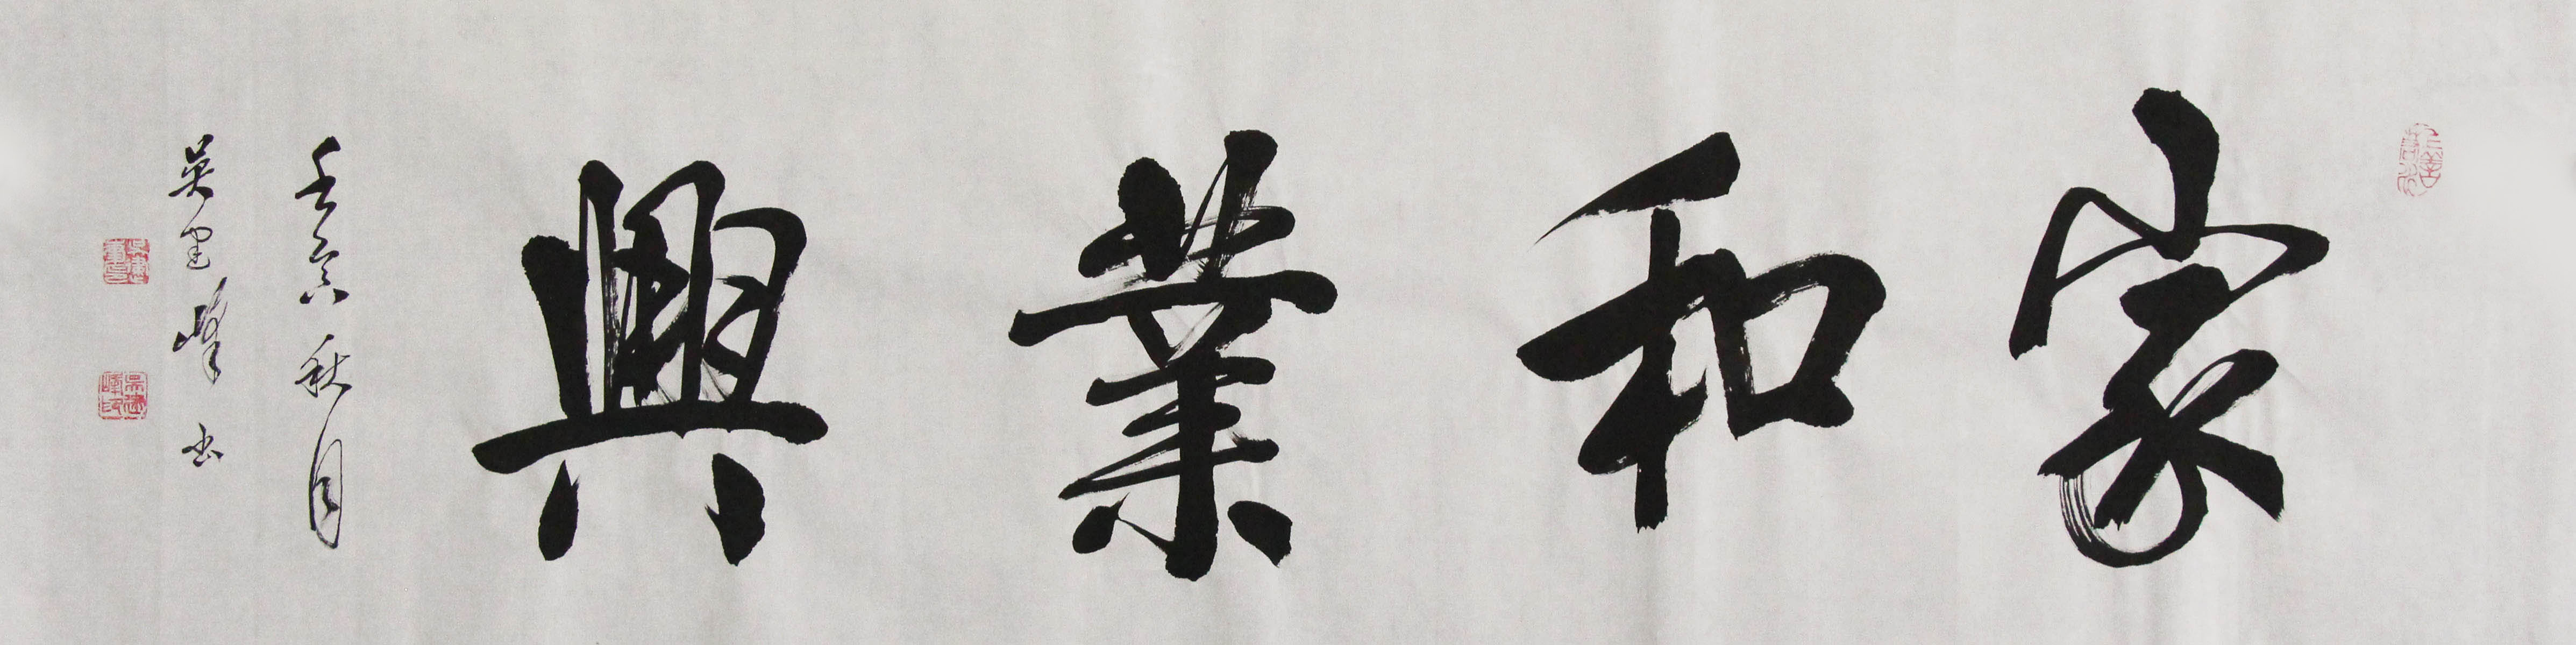 家和業興
壬寅秋月
吴建峰书